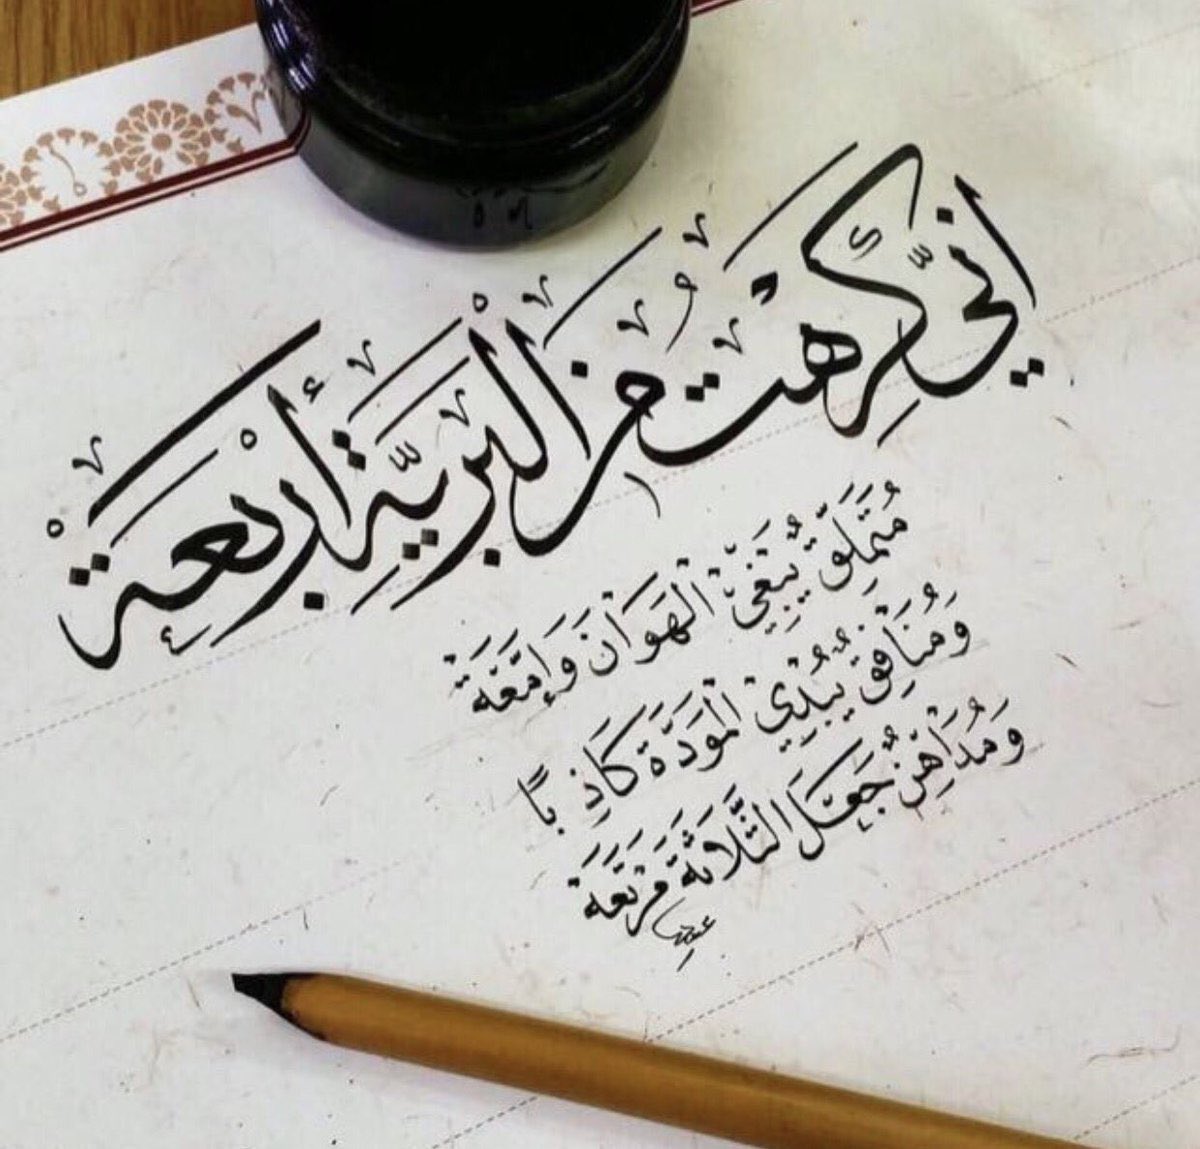 إنّي كَرِهْتُ من الْبريّةِ أرْبعةْ
مُتَمَلِّقٌ يَبْتَغِيْ الْهَوَانَ وَإمَّعَةْ
وَمُنَافِقٌ يُبْدِيْ الْمَوَدَّةَ كَاذِبًا
وَمُدَاهِنٌ جَعَلَ الثَّلَاثَةَ مَرْبَعَةْ